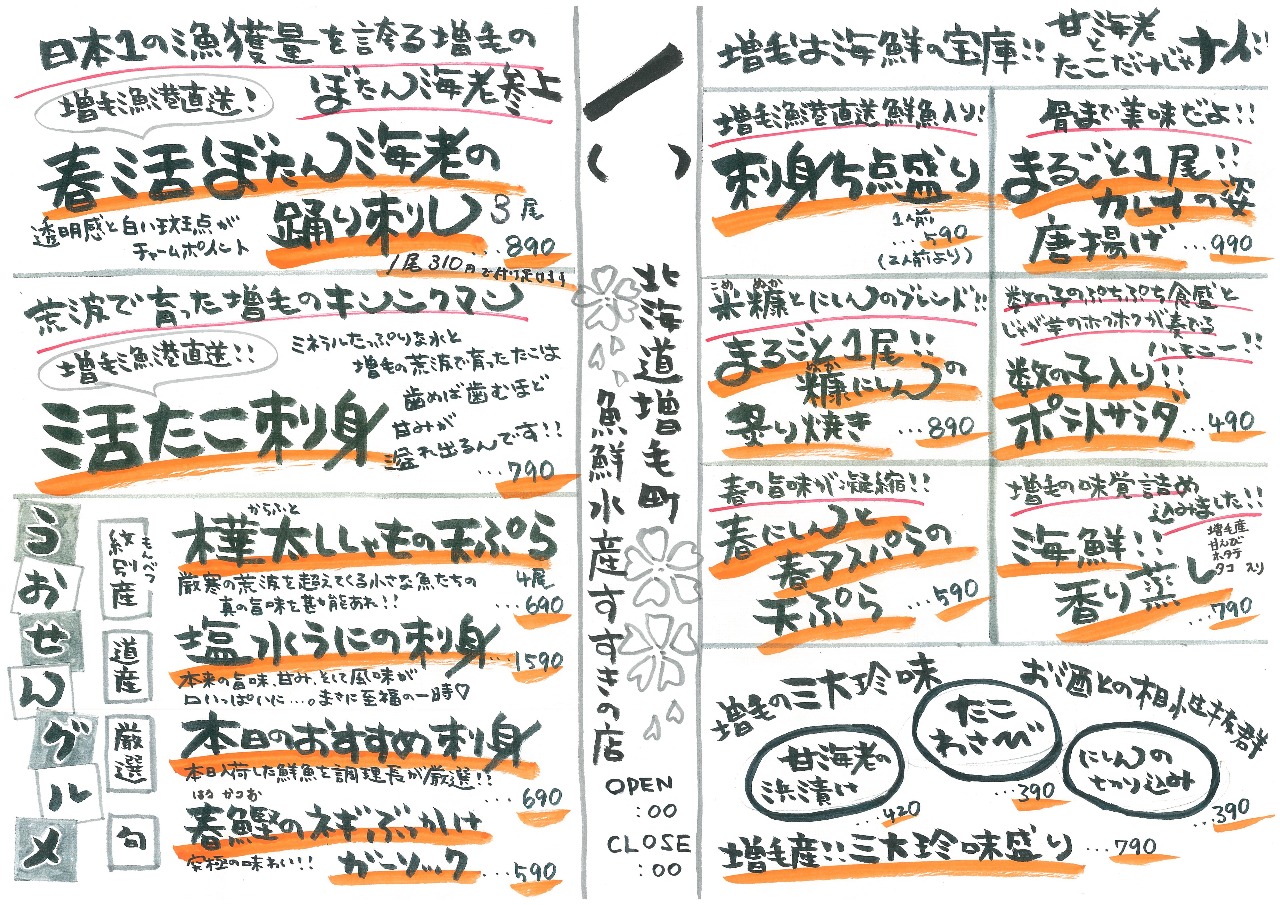 日本1の漁獲量を誇る増毛の
ぼたん海老参上
増毛漁港直送!
春活ぼたん海老の
踊り刺し 3尾
…890
透明感と白い斑点が
チャームポイント
1尾310円で付け足せます
荒波で育った増毛のキン肉マン
増毛漁港直送!!
ミネラルたっぷりな水と
増毛の荒波で育ったたこは
歯めば歯むほど
甘みが
溢れ出るんです!!
活たこ刺身
…790
うおせんグルメ
紋別産
もんべつ
からふと
樺太ししゃもの天ぷら
4尾
…690
厳寒の荒波を超えてくる小さな魚たちの
真の旨味を堪能あれ!!
道産
塩水うにの刺身…1590
本来の旨味、甘み、そして風味が
口いっぱいに…。まさに至福の一時♡
厳選
本日のおすすめ刺身
本日入荷した鮮魚を調理長が厳選!!
…690
旬
はる かつお
春鰹のネギぶっかけ
ガーリック
…590
究極の味わい!!
/
( )
北海道増毛町
魚鮮水産すすきの店
OPEN
:00
CLOSE
:00
増毛は海鮮の宝庫!!
甘海老
と
たこだけじゃナイ!!
増毛漁港直送鮮魚入り!
刺身5点盛り
1人前
…590
(2人前より)
骨まで美味だよ!!
まるごと1尾!!
カレイの姿
唐揚げ …990
こめ ぬか
米糠とにしんのブレンド!!
まるごと1尾!!
ぬか
糠にしんの
炙り焼き …890
数の子のぷちぷち食感と
じゃが芋のホクホクが奏でる
ハーモニー!!
数の子入り!!
ポテトサラダ …490
春の旨味が凝縮!!
春にしんと
春アスパラの
天ぷら …590
増毛の味覚詰め
込みました!!
海鮮!!
香り蒸し
増毛産
甘えび
ホタテ
タコ 入り
…790
増毛の三大珍味
お酒との相性抜群
甘海老の
浜漬け
…420
たこ
わさび
…390
にしんの
切り込み
…390
増毛産!!三大珍味盛り …790